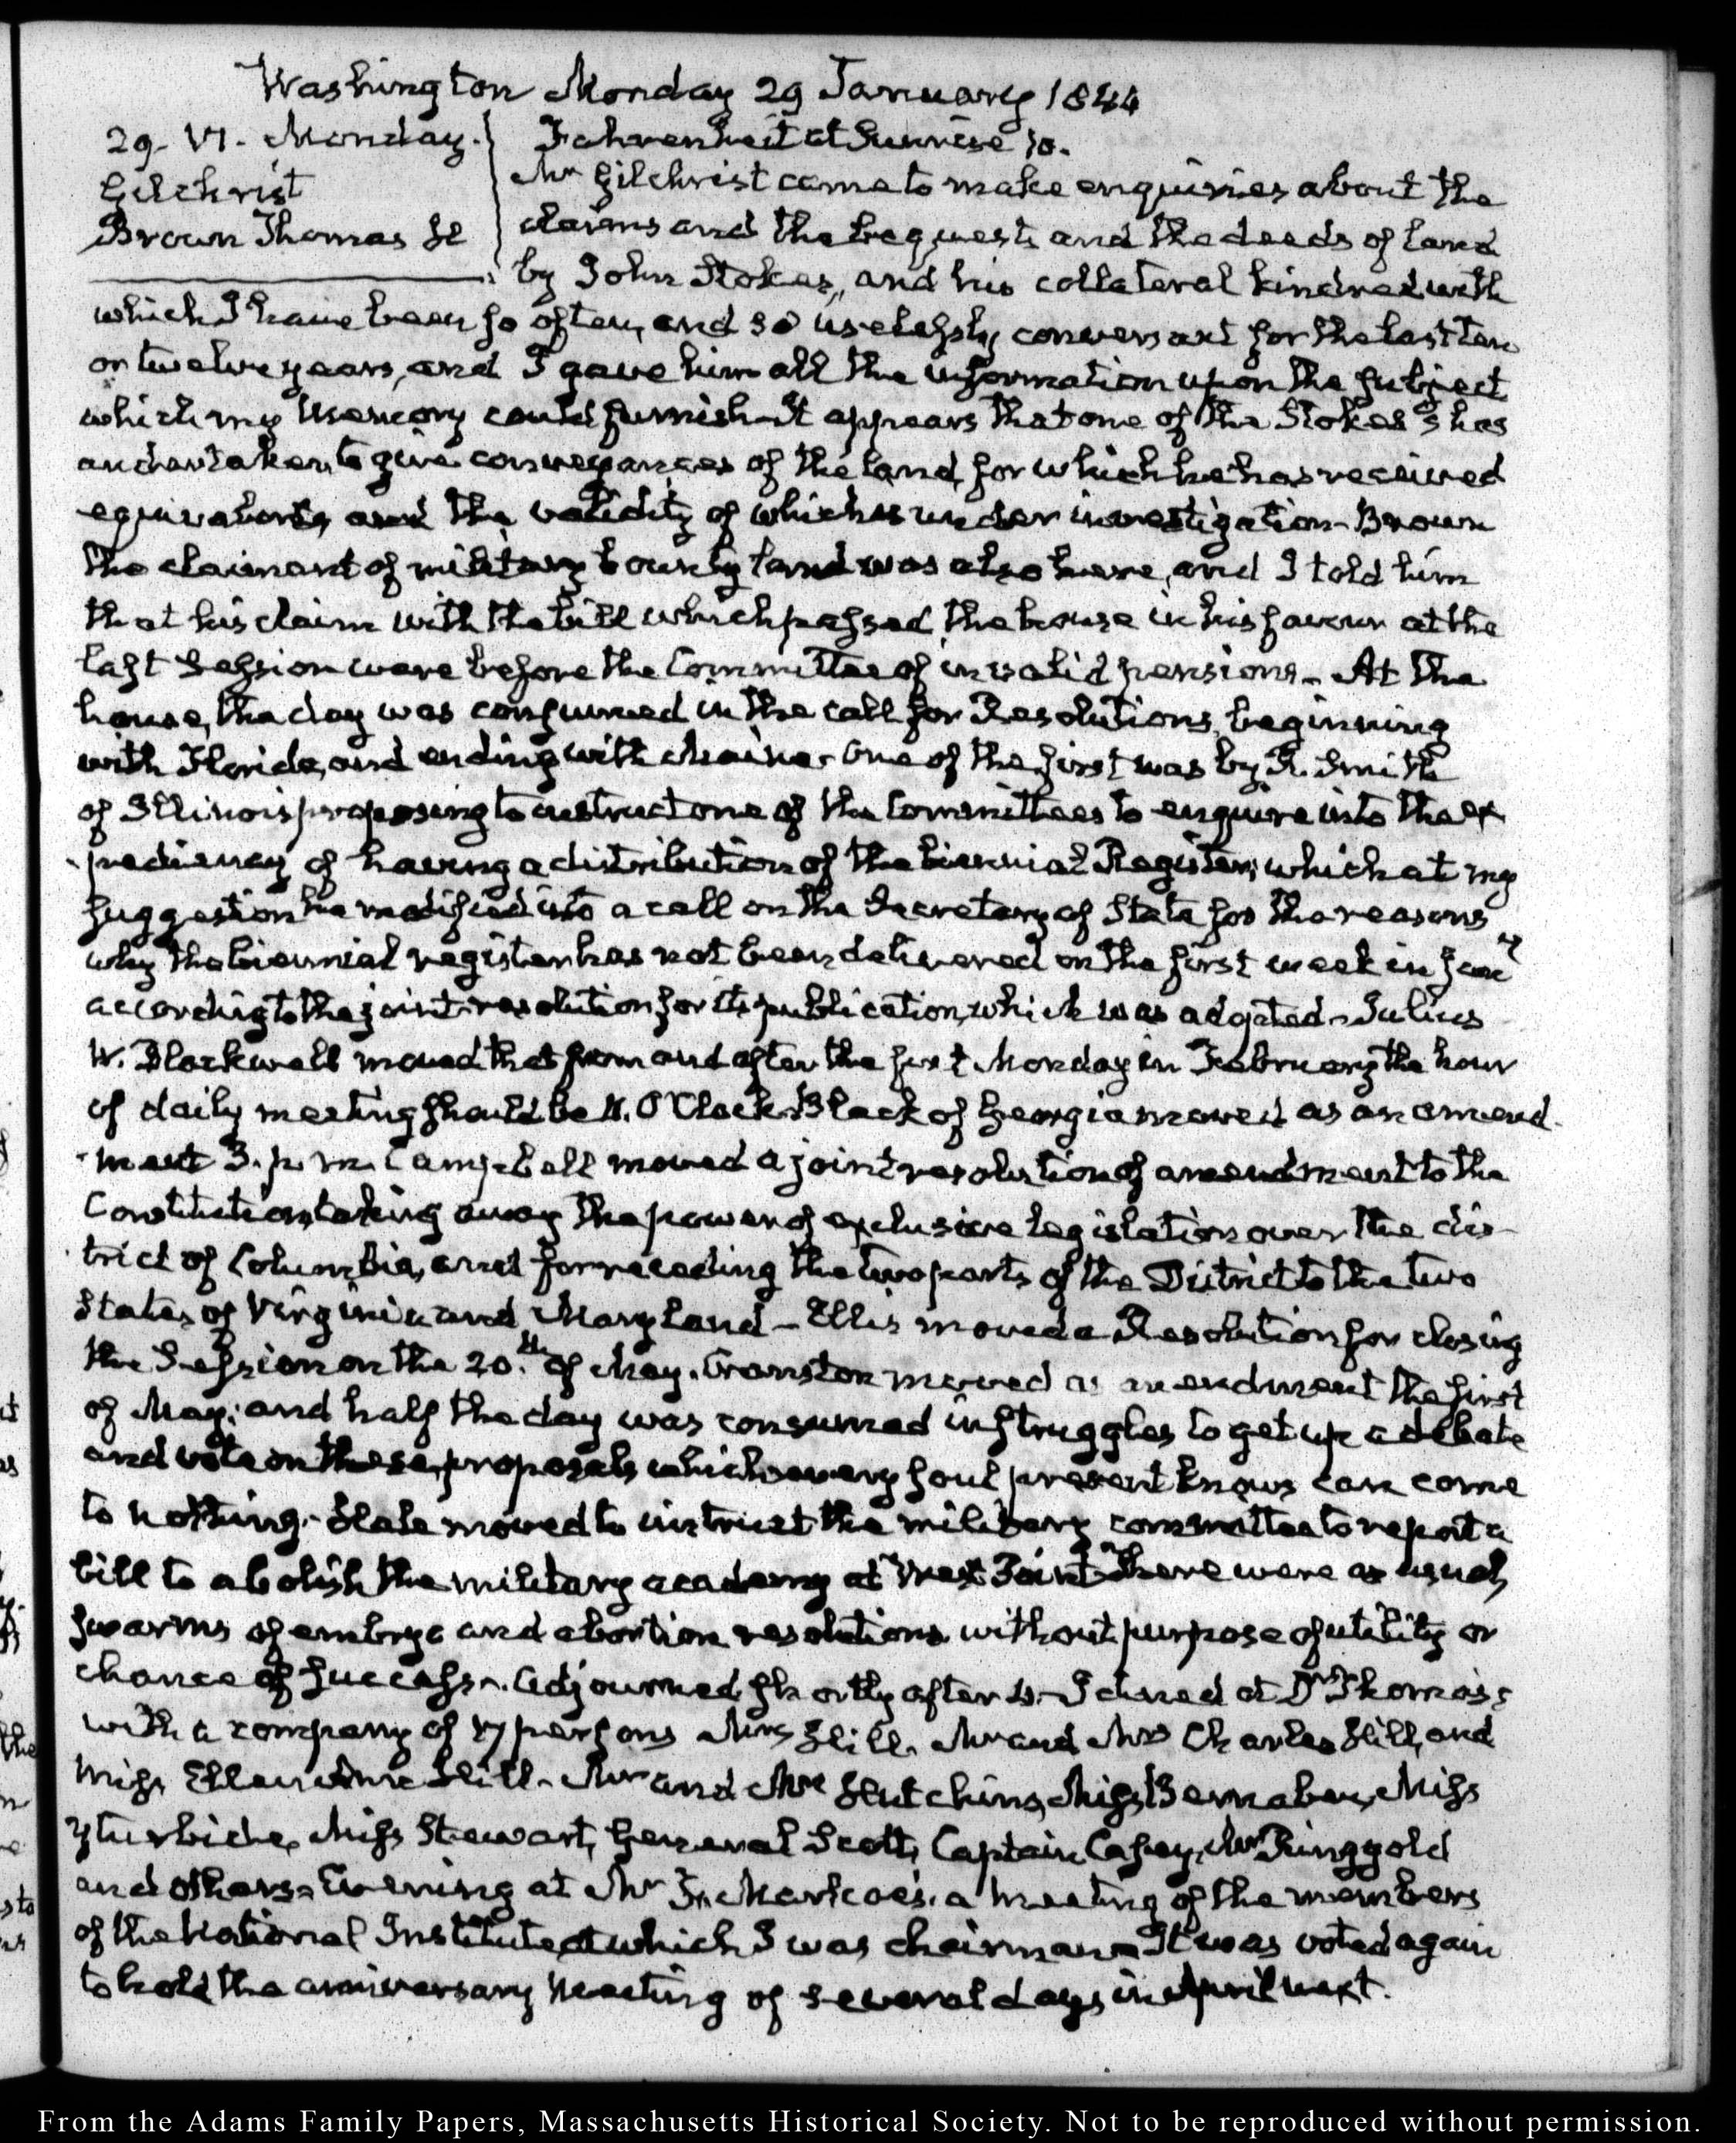 Washington Monday 29 January 1844
29. VI. Monday.
Gilchrist
Brown Thomas H
Fahrenheit at Sunrise 10.
Mr Gilchrist came to make enquiries about the
claims and the bequests and the deeds of land
by John Stokes, and his collateral kindred with
which I have been so often, and so uselessly conversant for the last ten
or twelve years, and I gave him all the information upon the subject
which my memory could furnish. It appears that one of the Stokes's has
undertaken to give conveyances of the land, for which he has received
equivalents, and the validity of which is under investigation. Brown
the claimant of military bounty land was also here, and I told him
that his claim with the bill which passed the house in his favour at the
last Session were before the Committee of invalid pensions. At the
house, the day was consumed in the call for Resolutions, beginning
with Florida, and ending with Maine. One of the first was by R. Smith
of Illinois proposing to instruct one of the Committees to enquire into the ex
-pediency of having a distribution of the biennial Register; which at my
suggestion he modified into a call on the Secretary of State for the reasons
why the biennial register has not been delivered on the first week in Jany
according to the joint resolution for its publication, which was adopted. Julius
W. Blackwell moved that from and after the first Monday in February the hour
of daily meeting should be 11. O'Clock. Black of Georgia moved as an amend-
-ment 3. p. m. Campbell moved a joint resolution of amendment to the
Constitution, taking away the power of exclusive legislation over the dis-
trict of Columbia, and for receding the two parts of the District to the two
States of Virginia and Maryland – Ellis moved a Resolution for closing
the Session on the 20.th of May. Cranston moved as amendment the first
of May; and half the day was consumed in struggles to get up a debate
and vote on these proposals which every soul present knows can come
to nothing. Hale moved to instruct the military committee to report a
bill to abolish the military academy at West Point. There were as usual,
swarms of embryo and abortion resolutions without purpose of utility or
chance of success. Adjourned shortly after 3. I dined at Dr Thomas's
with a company of 17 persons Mrs Hill. Mr and Mrs Charles Hill, and
Miss Ellen Anne Hill. Mr and Mrs Hutchins, Miss Bernabeu, Miss
Yturbide, Miss Stewart, General Scott, Captain Casey, Mr Ringgold
and others. Evening at Mr F. Markoe's. a meeting of the members
of the National Institute, at which I was chairman. It was voted again
to hold the anniversary Meeting of several days in April next.
From the Adams Family Papers, Massachusetts Historical Society. Not to be reproduced without permission.